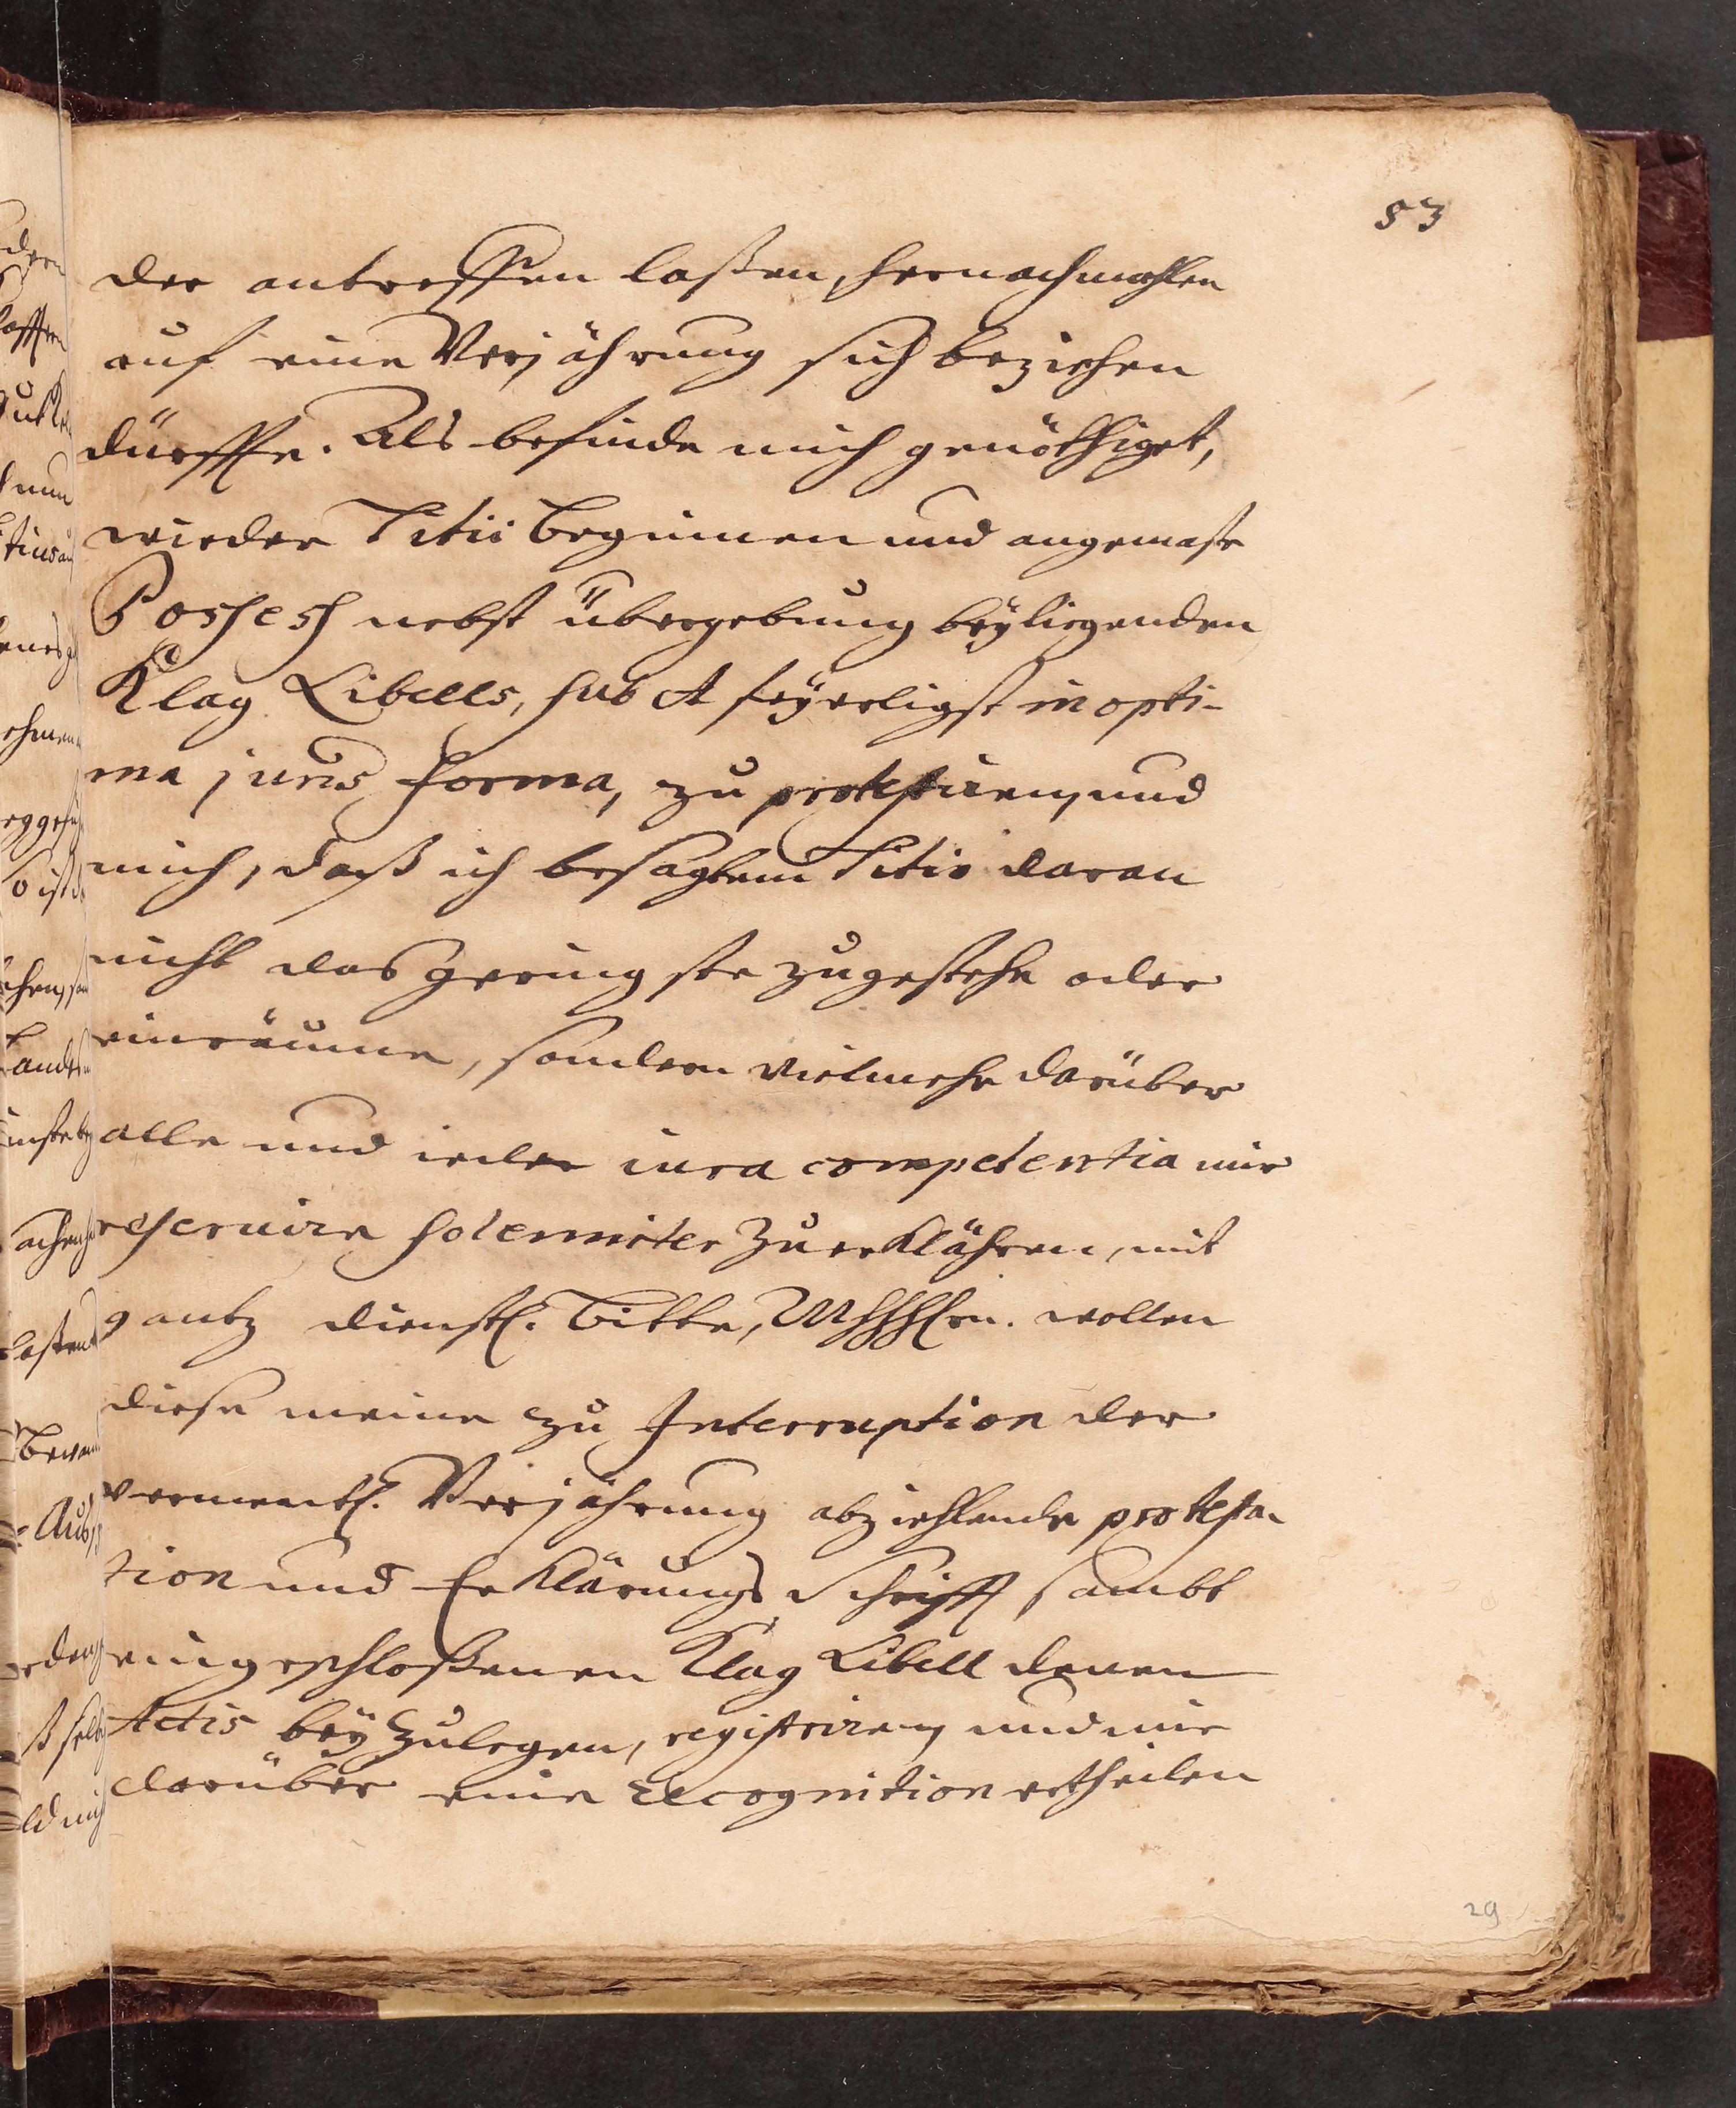 53
der antreffen laßen, hernachmahlen
auf eine Verjährung sich beziehen
dürffe. Als befinde mich genöthiget,
wieder Titii beginnen und angemaste
Possess nebst übergebung beyliegenden
Klag Libells, sub A feyerligst in opti-
ma juris forma, zu protestiren, und
mich, daß ich besagtem Titio daran
nicht das geringste zugestehe oder
einräume, sondern vielmehr darüber
alle und iede iura competentia mir
reservire solenniter zu erklähren, mit
gantz dienstl. Bitte, wollen
diese meine zu Interruption der
vermeintl. Verjährung abziehlende protesta-
tion und Erklärungs Schrifft sambt
eingeschloßenen Klag Libell denen
Actis bey zulegen, registriren und mir
darüber eine recognition ertheilen
29